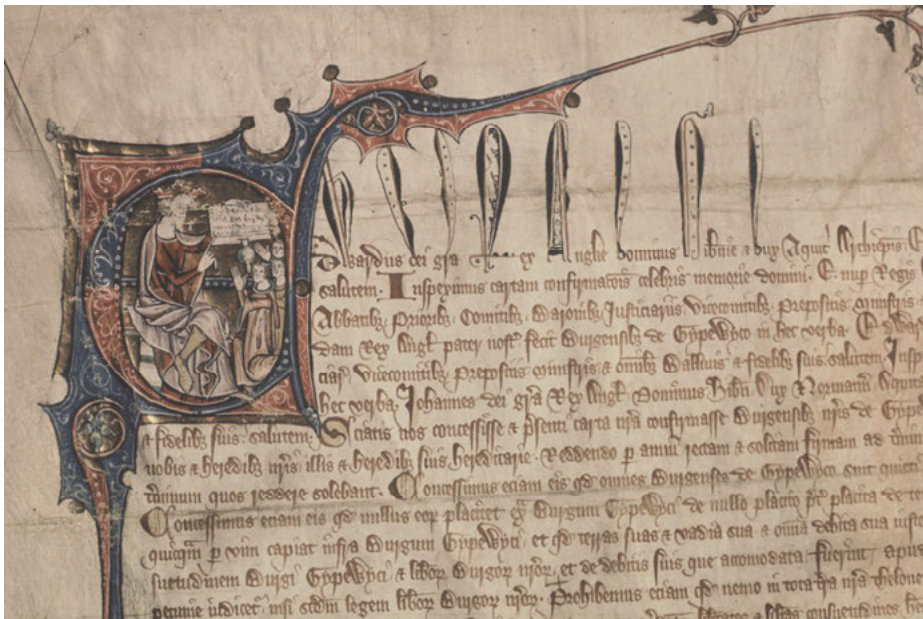 Edwardus dei gra Rex Anglie dominus Hibnie & dux Aquit Archiepis
salutem. Inspeximus cartam confirmatois celebris memorie domini. E. nup Regis
Abbatibz, Prioribz, Comitibz, Baronibz, Justiciariis, Vicecomitibz, Prepositis, ministris
dam Rex Angl pater nost fecit Burgensibz de Gypewyco in hec verba. Edwardus
ciar, Vicecomitibz, Prepositis, ministris & omibz Ballivis & fidelibz suis salutem
hec verba. Johannes dei gra Rex Angl Dominus Hibn Dux Normann
& fidelibz suis. salutem. Sciatis nos concessisse & psenti carta nra confirmasse Burgensibz nris de
nobis & heredibz nris illis & heredibz suis hereditarie. Reddendo p annu rectam & solitam firmam ad
quos reddere solebant. Concessimus eciam eis qd omnes Burgenses de Gypewyco sint quieti
Concessimus eciam eis qd nullus eor placitet ext Burgum Gypewyci de nullo placito pt placita de
p vim capiat infra Burgum Gypewyci. et qd terras suas & vadia sua & omia debita sua
suetudinem Burgi Gypewyci & libor Burgor nror. et de debitis suis que acomodata fuerint apud
iudicet nisi scdm legem libor Burgor nror. Prohibemus eciam qd nemo in tota nra
libertates & libas consuetudines